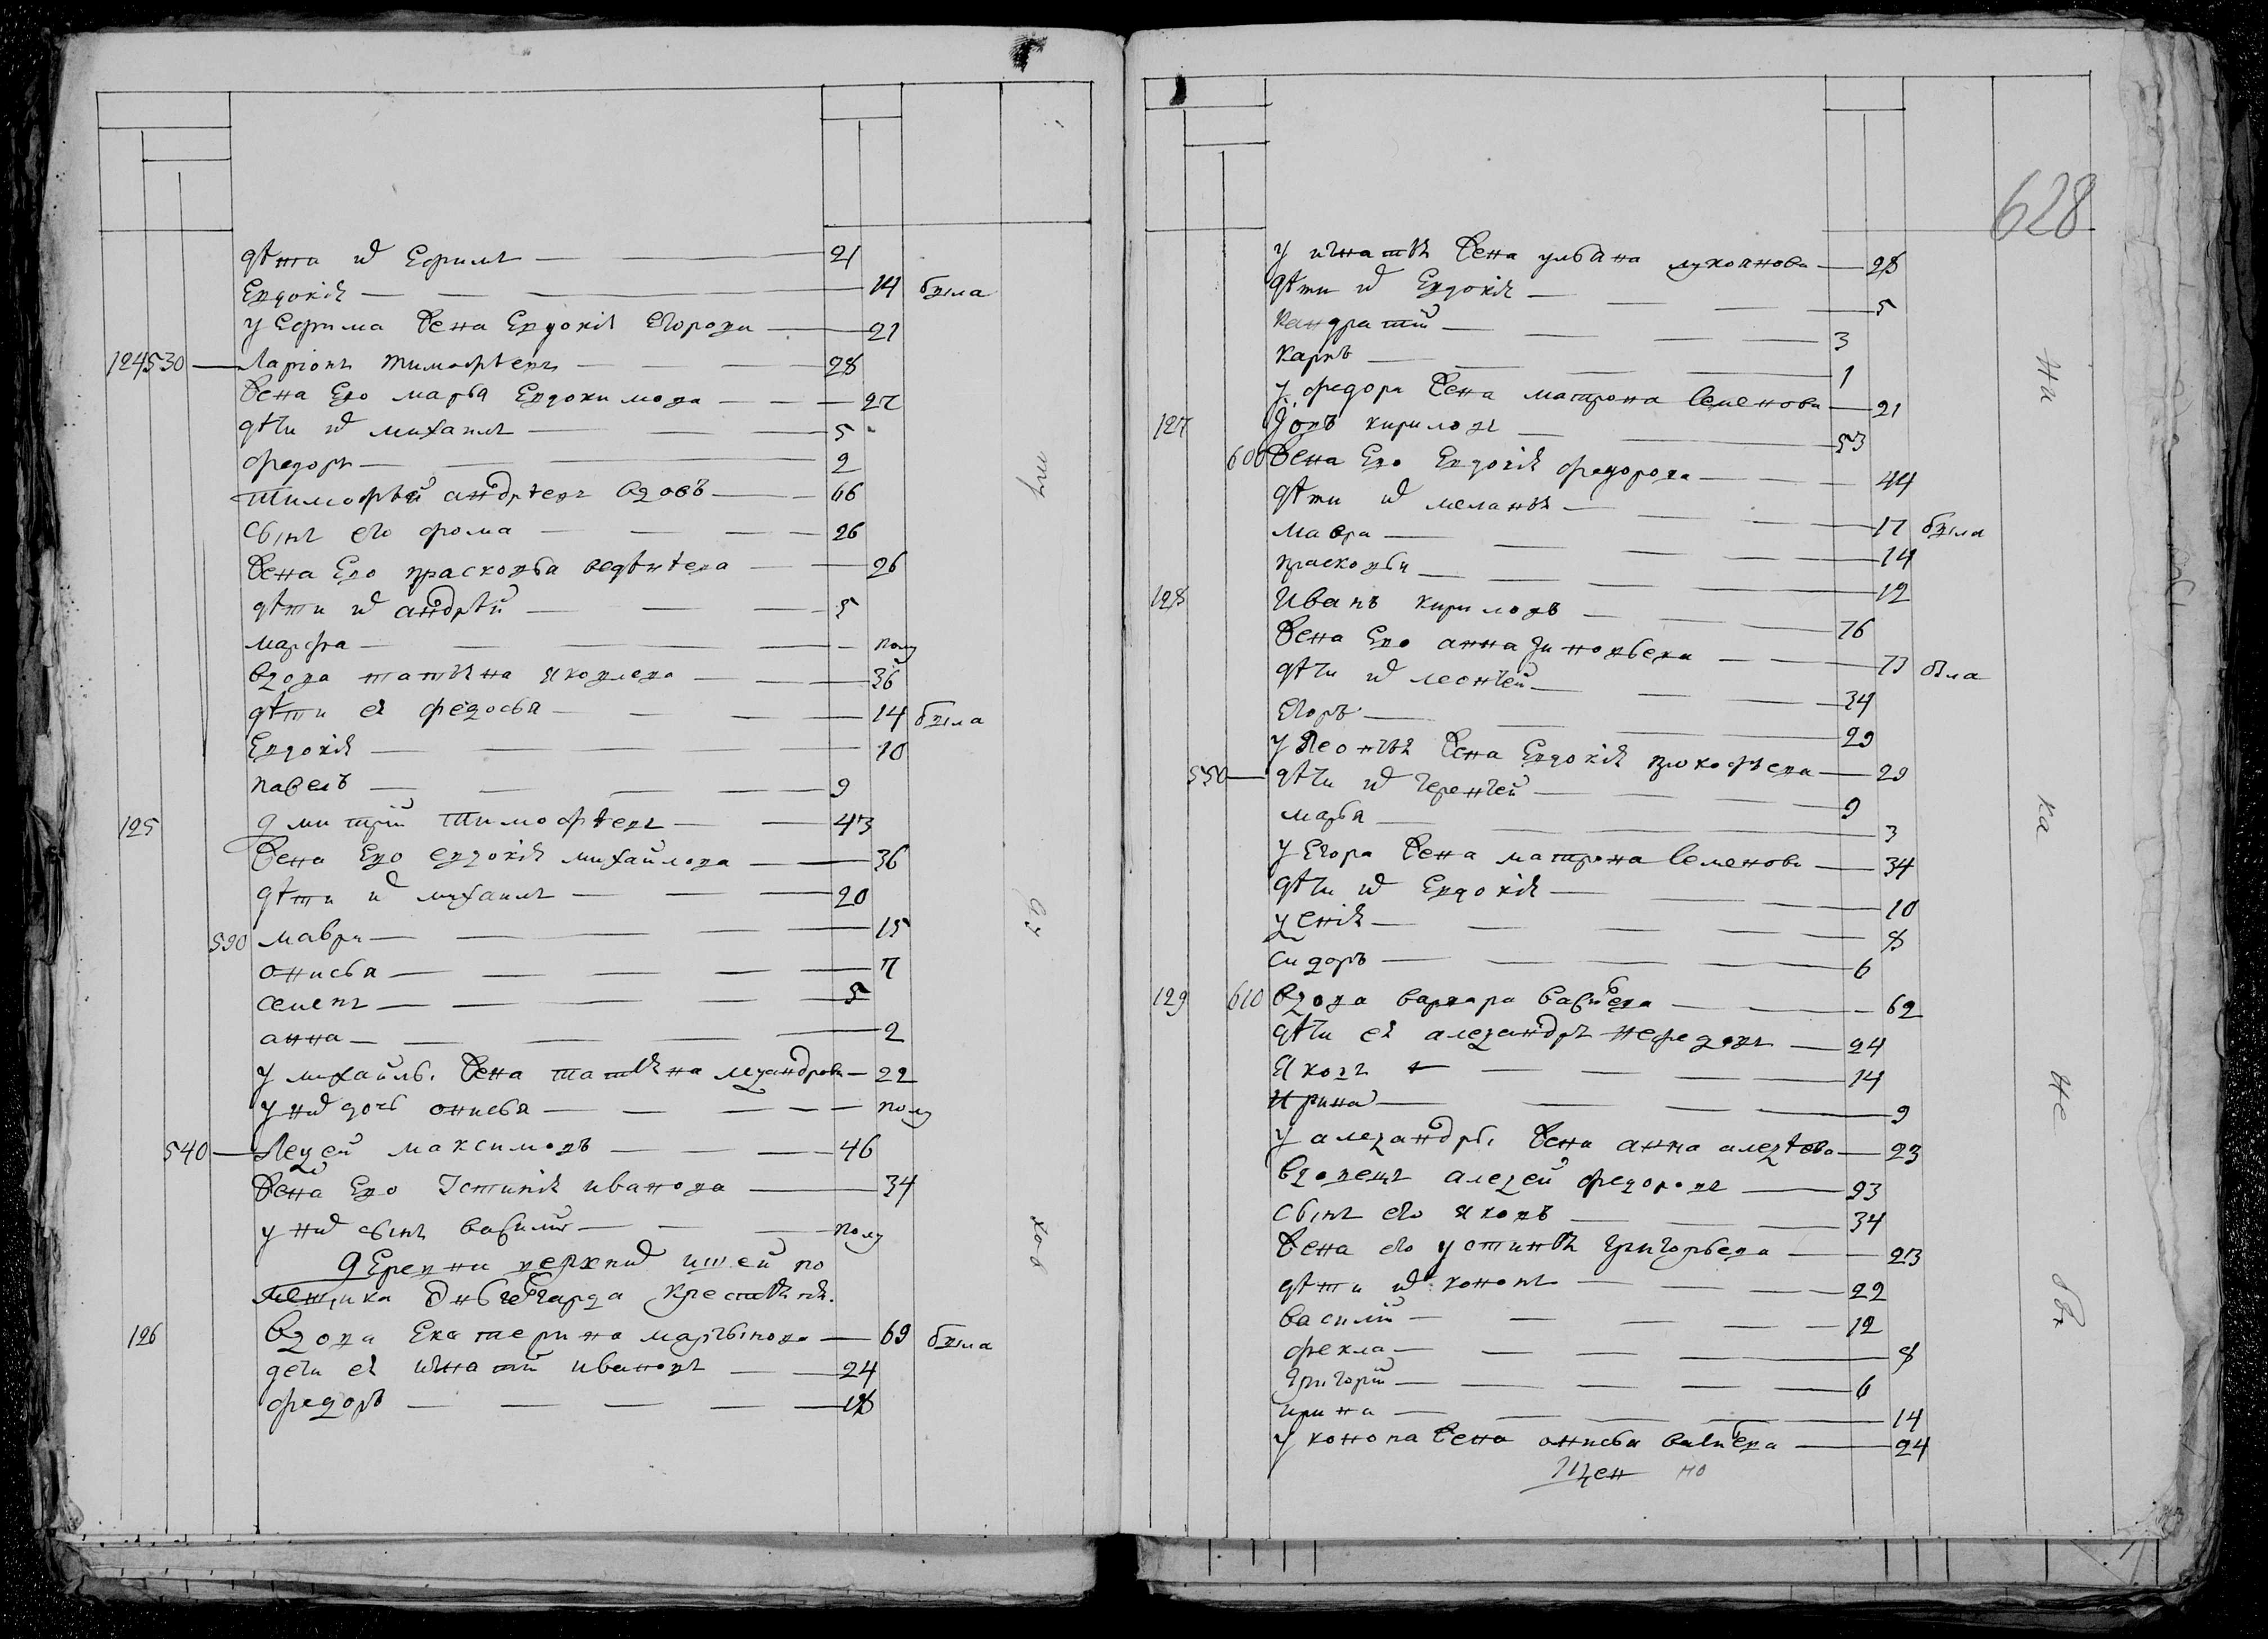 дѣти их Ефимъ — 21
Евдокія — 14 была
у Ефима жена Евдокія Егорова — 21
124 530 — Ларіонъ тимофѣевъ — 28
жена Ево марья Евдокимова — 27
дѣти их михаилъ — 5
федоръ — 2
тимофѣй андрѣевъ вдовъ — 66
сынъ его фома — 26
жена Ево прасковья авдѣева — 26
дѣти их андрѣй — 5
марфа — полу
вдова татьяна яковлева — 36
дѣти ея федосья — 14 была
Евдокія — 10
павелъ — 9
125 дмитрій тимофѣевъ — 43
жена Ево евдокія михайлова — 36
дѣти их михаилъ — 20
590 мавра — 15
онисья — 7
семенъ — 5
анна — 2
у михаилы жена татьяна лезандрова — 22
у них дочь онисья — полу
540 — Лезей максимовъ — 46
жена Ево Устинія иванова — 34
у них сынъ василий — полу
дЕревни верхних ишей по
мещика крестьяня
126 вдова Екатерина мартынова — 69 была
дети ея игнатій ивановъ — 24
федоръ — 18
628
у игнатья жена ульяна лукоянова — 28
дѣти их Евдокія — 5
кандратій — 3
карпъ — 1
у федора жена матрона семенова — 21
127 Иовъ кириловъ — 53
600 жена Ево Евдокія федорова — 44
дѣти их меланья — 17 была
мавра — 14
прасковья — 12
128 Иванъ кириловъ — 76
жена Ево анна зиновьева — 73 была
дѣти их леонтей — 34
Егоръ — 29
у Леонтья жена Евдокія прокофьева — 29
550 — дѣти их терентей — 9
марья — 3
у Егора жена матрона семенова — 34
дѣти их Евдокія — 10
ксенія — 8
сидоръ — 6
129 610 вдова варвара савиева — 62
дѣти ея алезандръ нефедовъ — 24
Яковъ — 14
Ирина — 9
у алезандры жена анна алезѣева — 23
вдовецъ алезей федоровъ — 93
сынъ его яковъ — 34
жена его устинья григорьева — 23
дѣти их кононъ — 22
василий — 12
фекла — 8
григорій — 6
ирина — 14
у конона жена онисья — 24